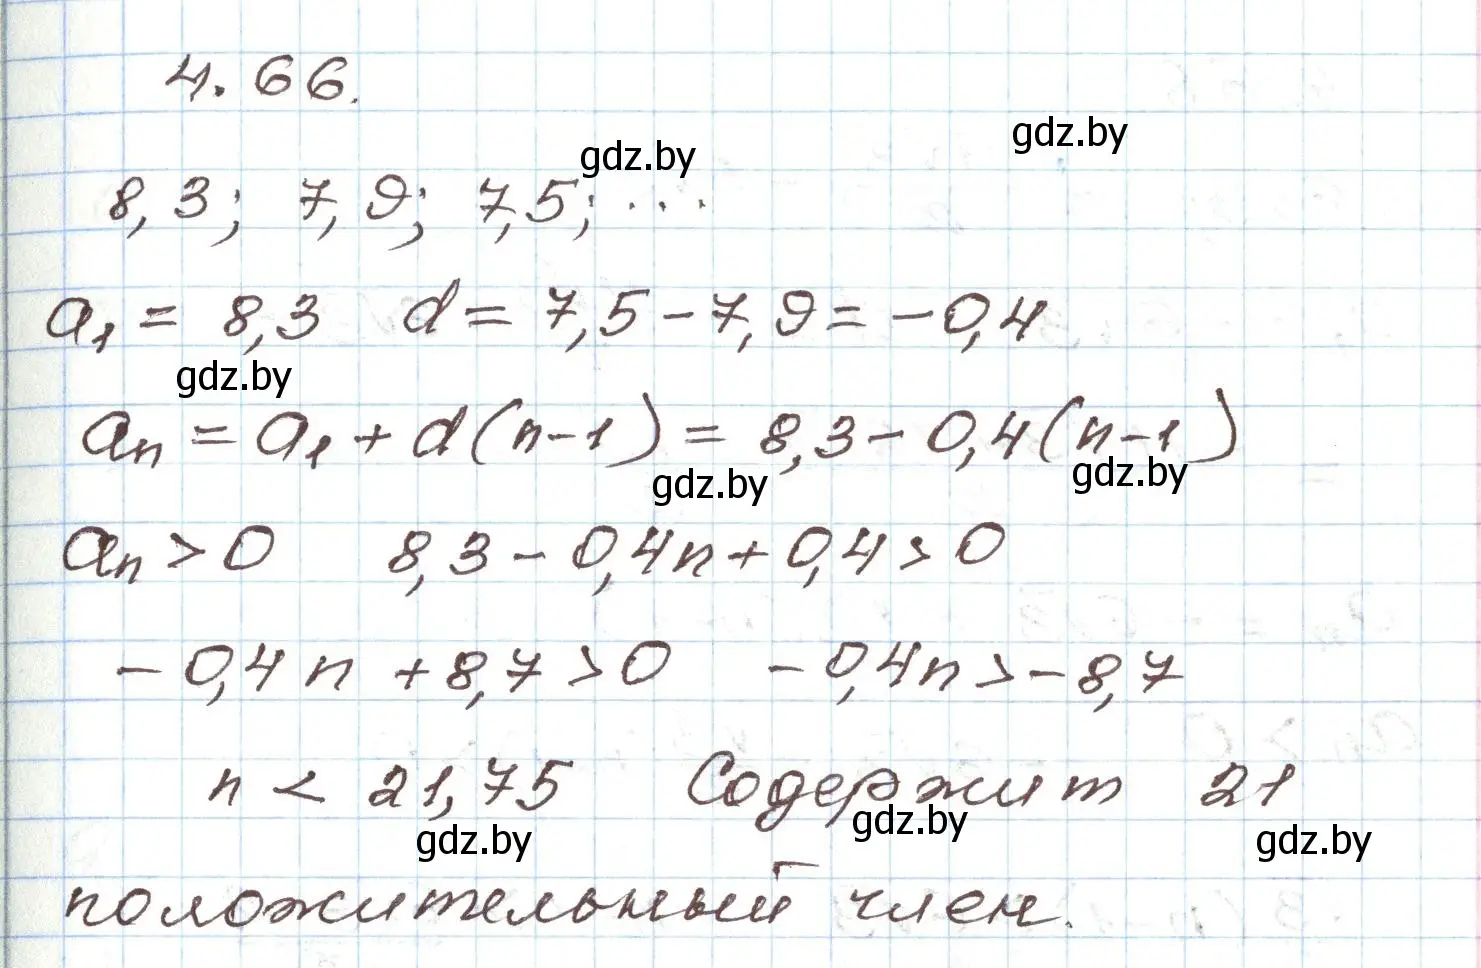 4.66.
gdz.by
gdz.by
8,3; 7,9; 7,5; ...
a₁ = 8,3 d = 7,5 - 7,9 = -0,4
gdz.by
aₙ = a₁ + d(n-1) = 8,3 - 0,4(n-1)
gdz.by
gdz.by
aₙ > 0 8,3 - 0,4n + 0,4 > 0
-0,4n + 8,7 > 0 -0,4n > -8,7
n < 21,75 Содержит 21
gdz.by
gdz.by
gdz.by
положительный член.